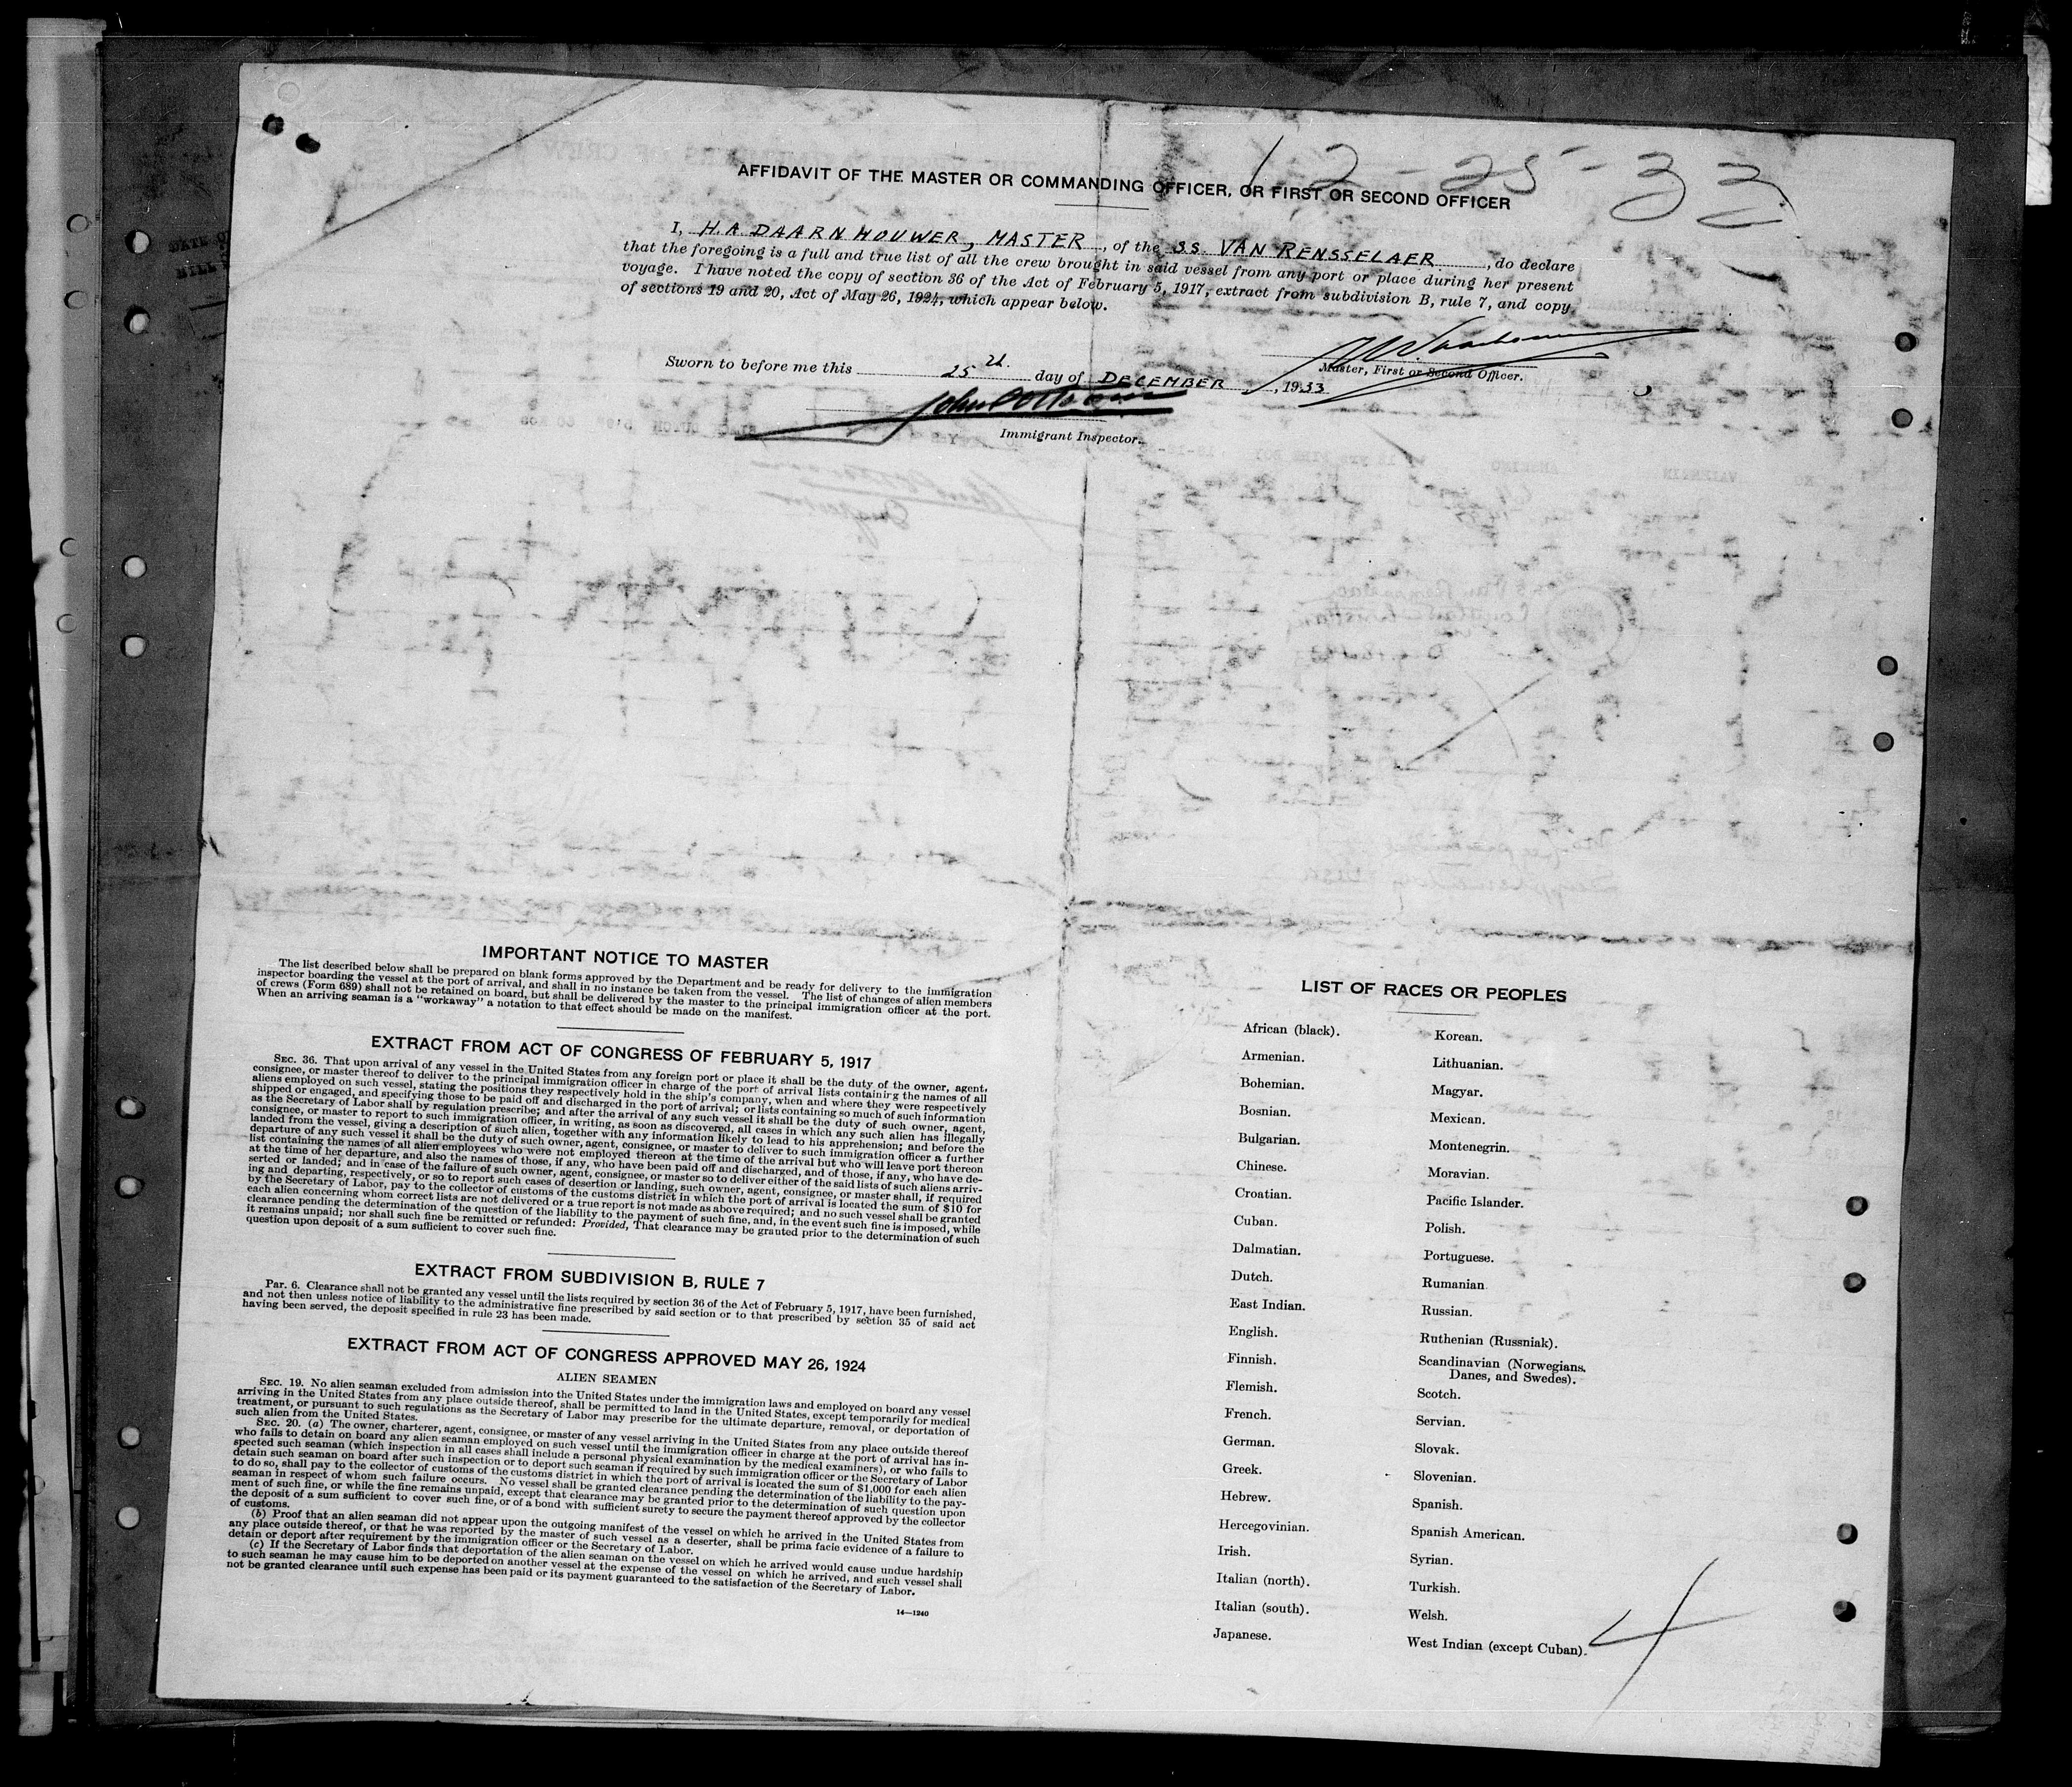 12-25-33
AFFIDAVIT OF THE MASTER OR COMMANDING OFFICER, OR FIRST OR SECOND OFFICER
I, H.A DAARNHOUWER, MASTER, of the SS. VAN RENSSELAER, do declare
that the foregoing is a full and true list of all the crew brought in said vessel from any port or place during her present
voyage. I have noted the copy of section 36 of the Act of February 5, 1917, extract from subdivision B, rule 7, and copy
of sections 19 and 20, Act of May 26, 1924, which appear below.
Master, First or Second Officer.
Sworn to before me this 25 day of DECEMBER, 1933
Immigrant Inspector.
IMPORTANT NOTICE TO MASTER
The list described below shall be prepared on blank forms approved by the Department and be ready for delivery to the immigration
inspector boarding the vessel at the port of arrival, and shall in no instance be taken from the vessel. The list of changes of alien members
of crews (Form 689) shall not be retained on board, but shall be delivered by the master to the principal immigration officer at the port.
When an arriving seaman is a "workaway" a notation to that effect should be made on the manifest.
EXTRACT FROM ACT OF CONGRESS OF FEBRUARY 5, 1917
SEC. 36. That upon arrival of any vessel in the United States from any foreign port or place it shall be the duty of the owner, agent,
consignee, or master thereof to deliver to the principal immigration officer in charge of the port of arrival lists containing the names of all
aliens employed on such vessel, stating the positions they respectively hold in the ship's company, when and where they were respectively
shipped or engaged, and specifying those to be paid off and discharged in the port of arrival; or lists containing so much of such information
as the Secretary of Labor shall by regulation prescribe; and after the arrival of any such vessel it shall be the duty of such owner, agent,
consignee, or master to report to such immigration officer, in writing, as soon as discovered, all cases in which any such alien has illegally
landed from the vessel, giving a description of such alien, together with any information likely to lead to his apprehension; and before the
departure of any such vessel it shall be the duty of such owner, agent, consignee, or master to deliver to such immigration officer a further
list containing the names of all alien employees who were not employed thereon at the time of the arrival but who will leave port thereon
at the time of her departure, and also the names of those, if any, who have been paid off and discharged, and of those, if any, who have de-
serted or landed; and in case of the failure of such owner, agent, consignee, or master so to deliver either of the said lists of such aliens arriv-
ing and departing, respectively, or so to report such cases of desertion or landing, such owner, agent, consignee, or master shall, if required
by the Secretary of Labor, pay to the collector of customs of the customs district in which the port of arrival is located the sum of $10 for
each alien concerning whom correct lists are not delivered or a true report is not made as above required; and no such vessel shall be granted
clearance pending the determination of the question of the liability to the payment of such fine, and, in the event such fine is imposed, while
it remains unpaid; nor shall such fine be remitted or refunded: Provided, That clearance may be granted prior to the determination of such
question upon deposit of a sum sufficient to cover such fine.
EXTRACT FROM SUBDIVISION B, RULE 7
Par. 6. Clearance shall not be granted any vessel until the lists required by section 36 of the Act of February 5, 1917, have been furnished,
and not then unless notice of liability to the administrative fine prescribed by said section or to that prescribed by section 35 of said act
having been served, the deposit specified in rule 23 has been made.
EXTRACT FROM ACT OF CONGRESS APPROVED MAY 26, 1924
ALIEN SEAMEN
SEC. 19. No alien seaman excluded from admission into the United States under the immigration laws and employed on board any vessel
arriving in the United States from any place outside thereof, shall be permitted to land in the United States, except temporarily for medical
treatment, or pursuant to such regulations as the Secretary of Labor may prescribe for the ultimate departure, removal, or deportation of
such alien from the United States.
SEC. 20. (a) The owner, charterer, agent, consignee, or master of any vessel arriving in the United States from any place outside thereof
who fails to detain on board any alien seaman employed on such vessel until the immigration officer in charge at the port of arrival has in-
spected such seaman (which inspection in all cases shall include a personal physical examination by the medical examiners), or who fails to
detain such seaman on board after such inspection or to deport such seaman if required by such immigration officer or the Secretary of Labor
to do so, shall pay to the collector of customs of the customs district in which the port of arrival is located the sum of $1,000 for each alien
seaman in respect of whom such failure occurs. No vessel shall be granted clearance pending the determination of the liability to the pay-
ment of such fine, or while the fine remains unpaid, except that clearance may be granted prior to the determination of such question upon
the deposit of a sum sufficient to cover such fine, or of a bond with sufficient surety to secure the payment thereof approved by the collector
of customs.
(b) Proof that an alien seaman did not appear upon the outgoing manifest of the vessel on which he arrived in the United States from
any place outside thereof, or that he was reported by the master of such vessel as a deserter, shall be prima facie evidence of a failure to
detain or deport after requirement by the immigration officer or the Secretary of Labor.
(c) If the Secretary of Labor finds that deportation of the alien seaman on the vessel on which he arrived would cause undue hardship
to such seaman he may cause him to be deported on another vessel at the expense of the vessel on which he arrived, and such vessel shall
not be granted clearance until such expense has been paid or its payment guaranteed to the satisfaction of the Secretary of Labor.
14—1240
LIST OF RACES OR PEOPLES
African (black).
Armenian.
Bohemian.
Bosnian.
Bulgarian.
Chinese.
Croatian.
Cuban.
Dalmatian.
Dutch.
East Indian.
English.
Finnish.
Flemish.
French.
German.
Greek.
Hebrew.
Hercegovinian.
Irish.
Italian (north).
Italian (south).
Japanese.
Korean.
Lithuanian.
Magyar.
Mexican.
Montenegrin.
Moravian.
Pacific Islander.
Polish.
Portuguese.
Rumanian
Russian.
Ruthenian (Russniak).
Scandinavian (Norwegians,
Danes, and Swedes).
Scotch.
Servian.
Slovak.
Slovenian.
Spanish.
Spanish American.
Syrian.
Turkish.
Welsh.
West Indian (except Cuban).
4